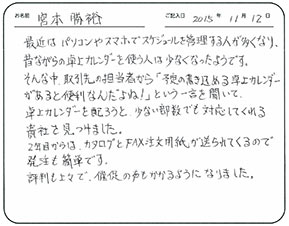 お名前 宮本 勝裕 ご記入日 2015年 11月 12日
最近はパソコンやスマホでスケジュールを管理する人が多くなり、
昔ながらの卓上カレンダーを使う人は少なくなったようです。
そんな中、取引先の担当者から「予定の書き込める卓上カレンダー
があると便利なんだよね!」という一言を聞いて、
卓上カレンダーを配ろうと、少ない部数でも対応してくれる
貴社を見つけました。
2年目からは、カタログとFAX注文用紙が送られてくるので
発注も簡単です。
評判も上々で、催促の声もかかるようになりました。